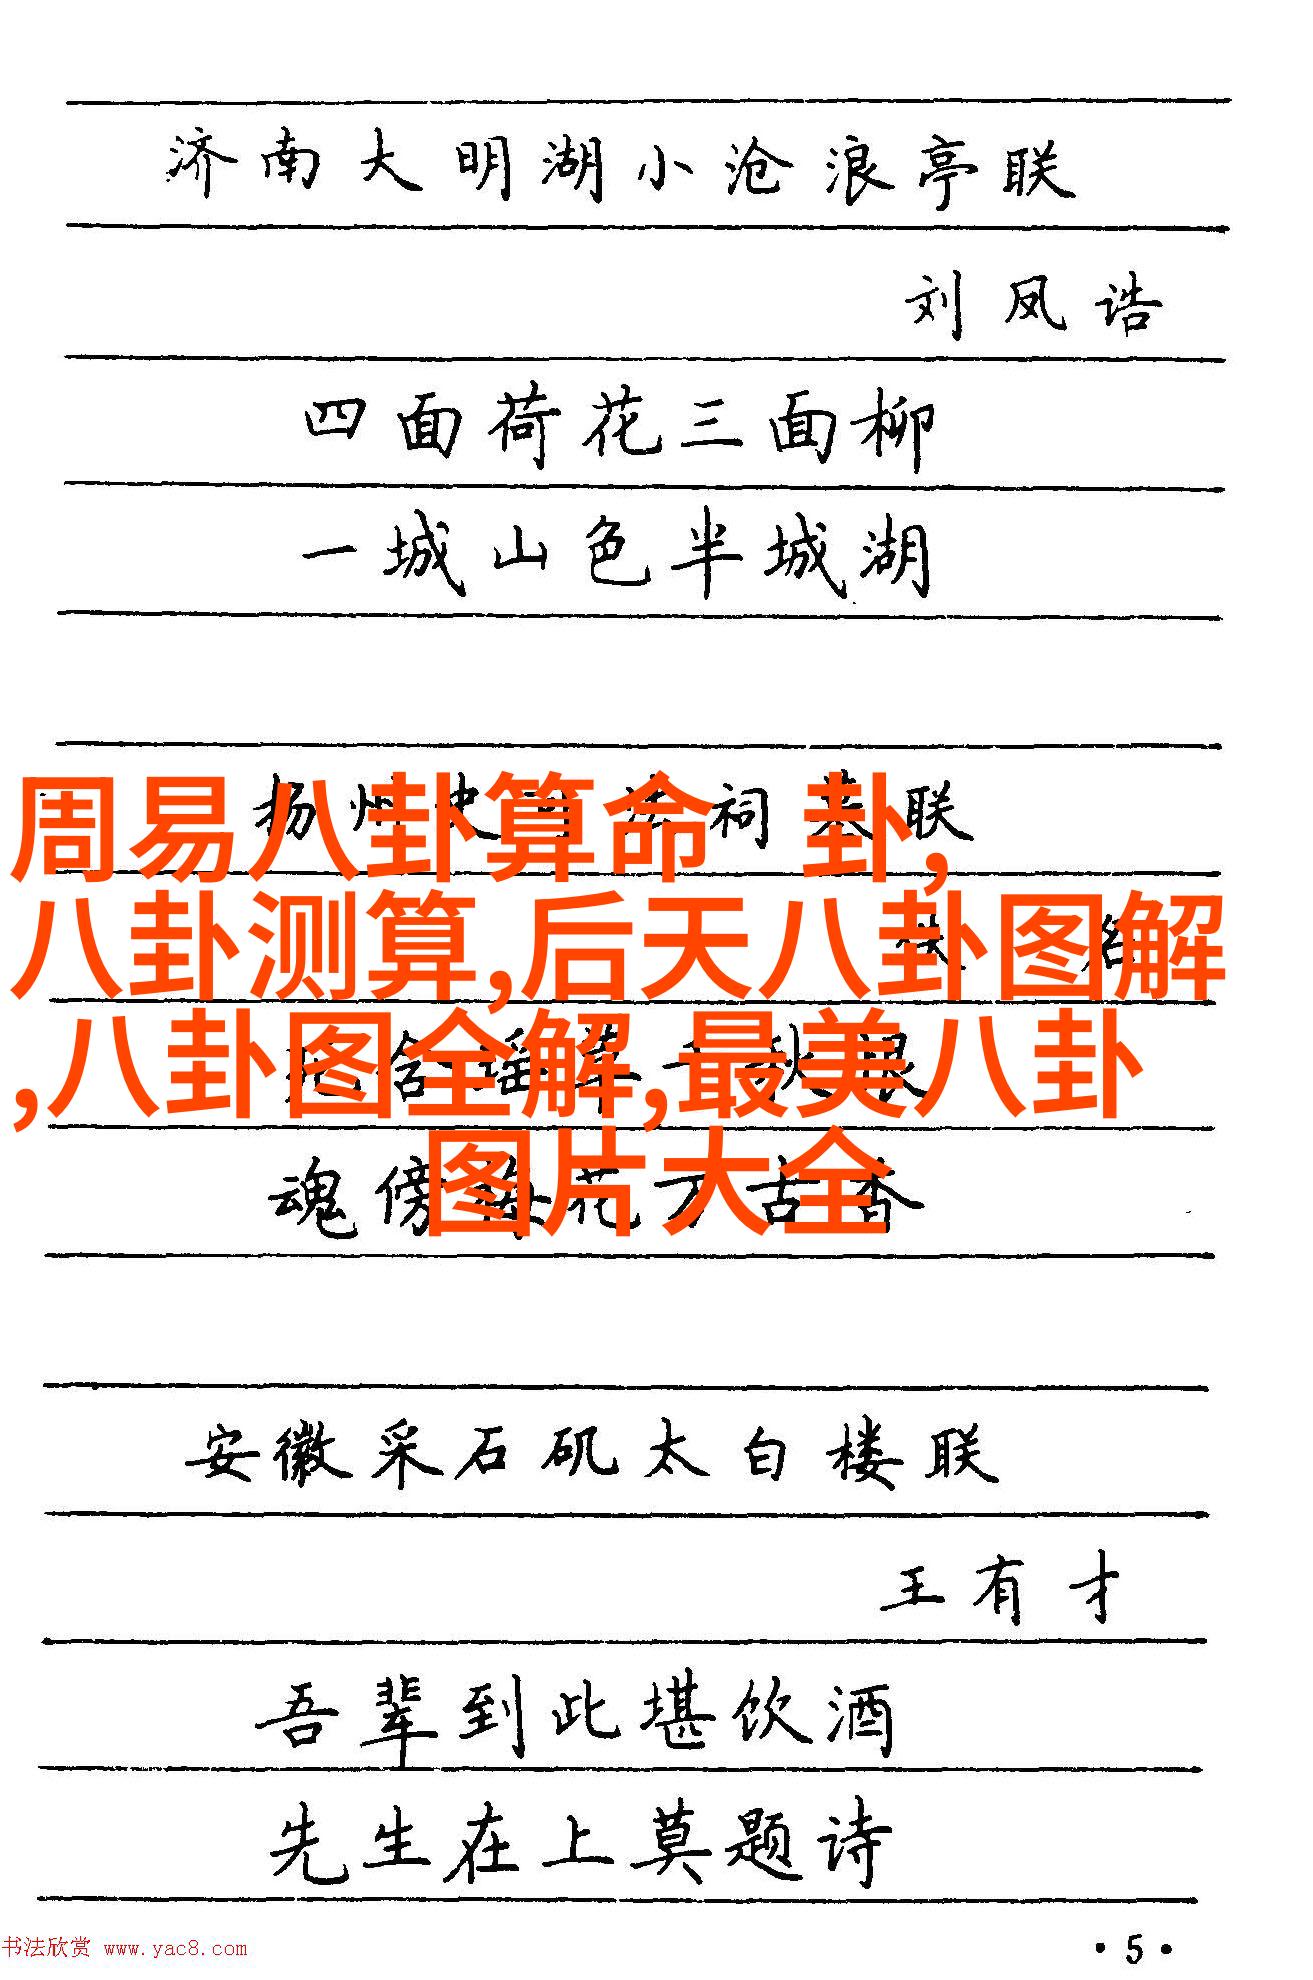 济南大明湖小沧浪亭联
刘凤诰
四面荷花三面柳
一城山色半城湖
扬州史可法祠墓联
周易八卦算命 卦,
八卦测算,后天八卦图解
,八卦图全解,最美八卦
图片大全
魂傍梅花万古香
安徽采石矶太白楼联
王有才
吾辈到此堪饮酒
先生在上莫题诗
书法欣赏 www.yac8.com
·5·